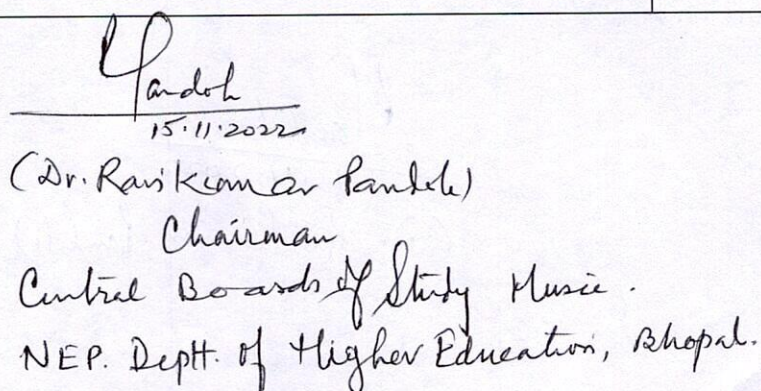 Pandole
15.11.2022
(Dr. Ravi Kumar Pandole)
Chairman
Central Boards of Study Music.
NEP. Deptt. of Higher Education, Bhopal.